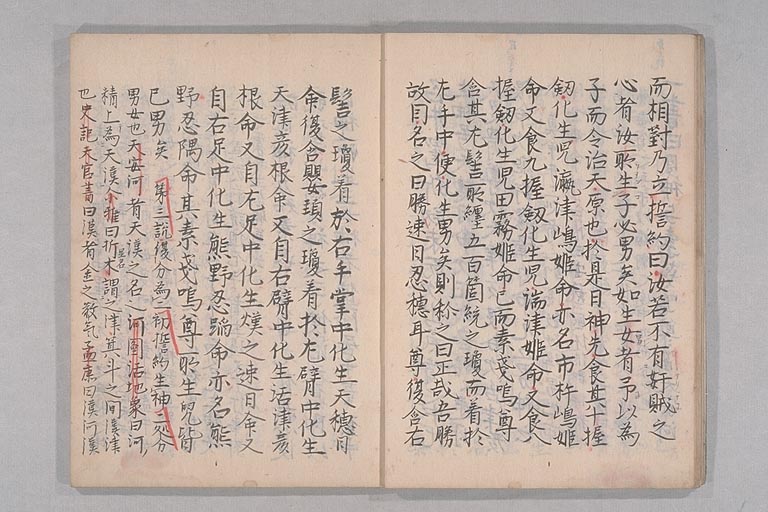 而相對乃立誓約曰汝若不有奸賊之
心者汝所生子必男矣如生女者予以為
子而令治天原也於是日神先食其十握
劔化生児瀛津嶋姫命亦名市杵嶋姫
命又食九握劔化生児湍津姫命又食八
握劔化生児田霧姫命已而素戔嗚尊
含其左髻所纏五百箇統之瓊而着於
左手中便化生男矣則称之曰正哉吾勝
故因名之曰勝速日忍穂耳尊復含右
髻之瓊着於右手掌中化生天穂日
命復含嬰頚之瓊着於左臂中化生
天津彦根命又自右臂中化生活津彦
根命又自左足中化生熯之速日命又
自右足中化生熊野忍蹈命亦名熊
野忍隅命其素戔嗚尊所生児皆
已男矣 第三説復分為三初誓約生神三 分
男女也天安河者天漢之名 河圖括地象曰河
精上為天漢 尓雅曰析木謂之津箕斗之間漢津
也史記天官書曰漢者金之散氣孟康曰漢河漢